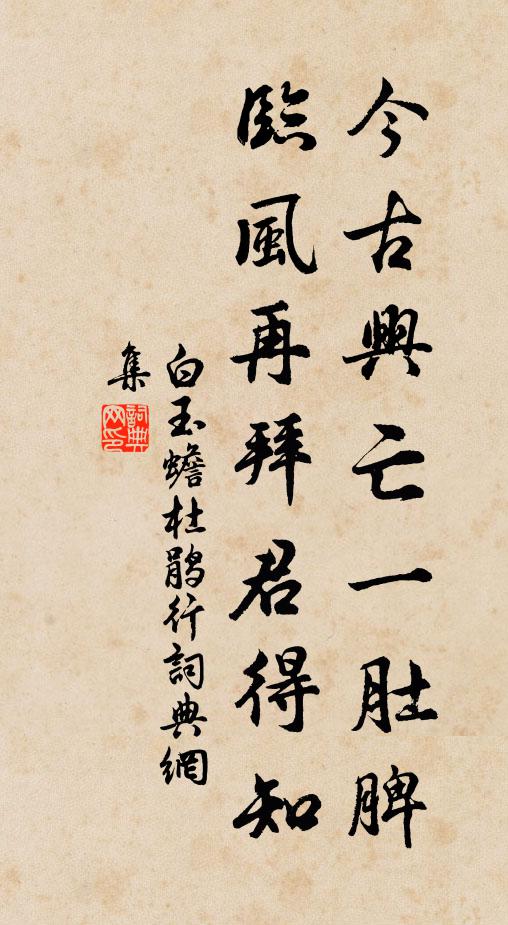 今古興亡一肚脾
臨風再拜君得知
白玉蟾杜鵑行詞典網
集
詞典网印